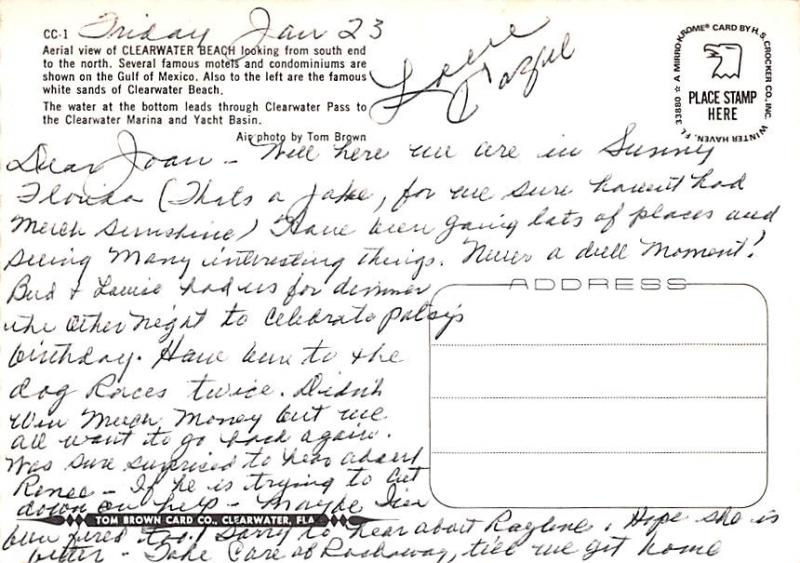 CC-1
Friday Jan 23
Aerial view of CLEARWATER BEACH looking from south end
to the north. Several famous motels and condominiums are
shown on the Gulf of Mexico. Also to the left are the famous
white sands of Clearwater Beach.
The water at the bottom leads through Clearwater Pass to
the Clearwater Marina and Yacht Basin.
Air photo by Tom Brown
Love
A MIRRO-KROME® CARD BY H. S. CROCKER CO., INC.
WINTER HAVEN, FL. 33880
PLACE STAMP
HERE
Dear Joan - Well here we are in Sunny
Florida (Thats a Joke, for we sure havent had
Much Sunshine) Have been going lots of places and
seeing Many interesting things. Never a dull Moment!
Bud + Louise had us for dinner
the other night to celebrate Patsy's
birthday. Have been to the
dog Races twice. Didn't
Win Much Money but we
all want to go back again.
Was sure surprised to hear about
Renee - If he is trying to cut
down on help - Maybe I've
been fired too! Sorry to hear about Raylene. Hope she is
better - Take Care of Rockaway, till we get home
ADDRESS
TOM BROWN CARD CO., CLEARWATER, FLA